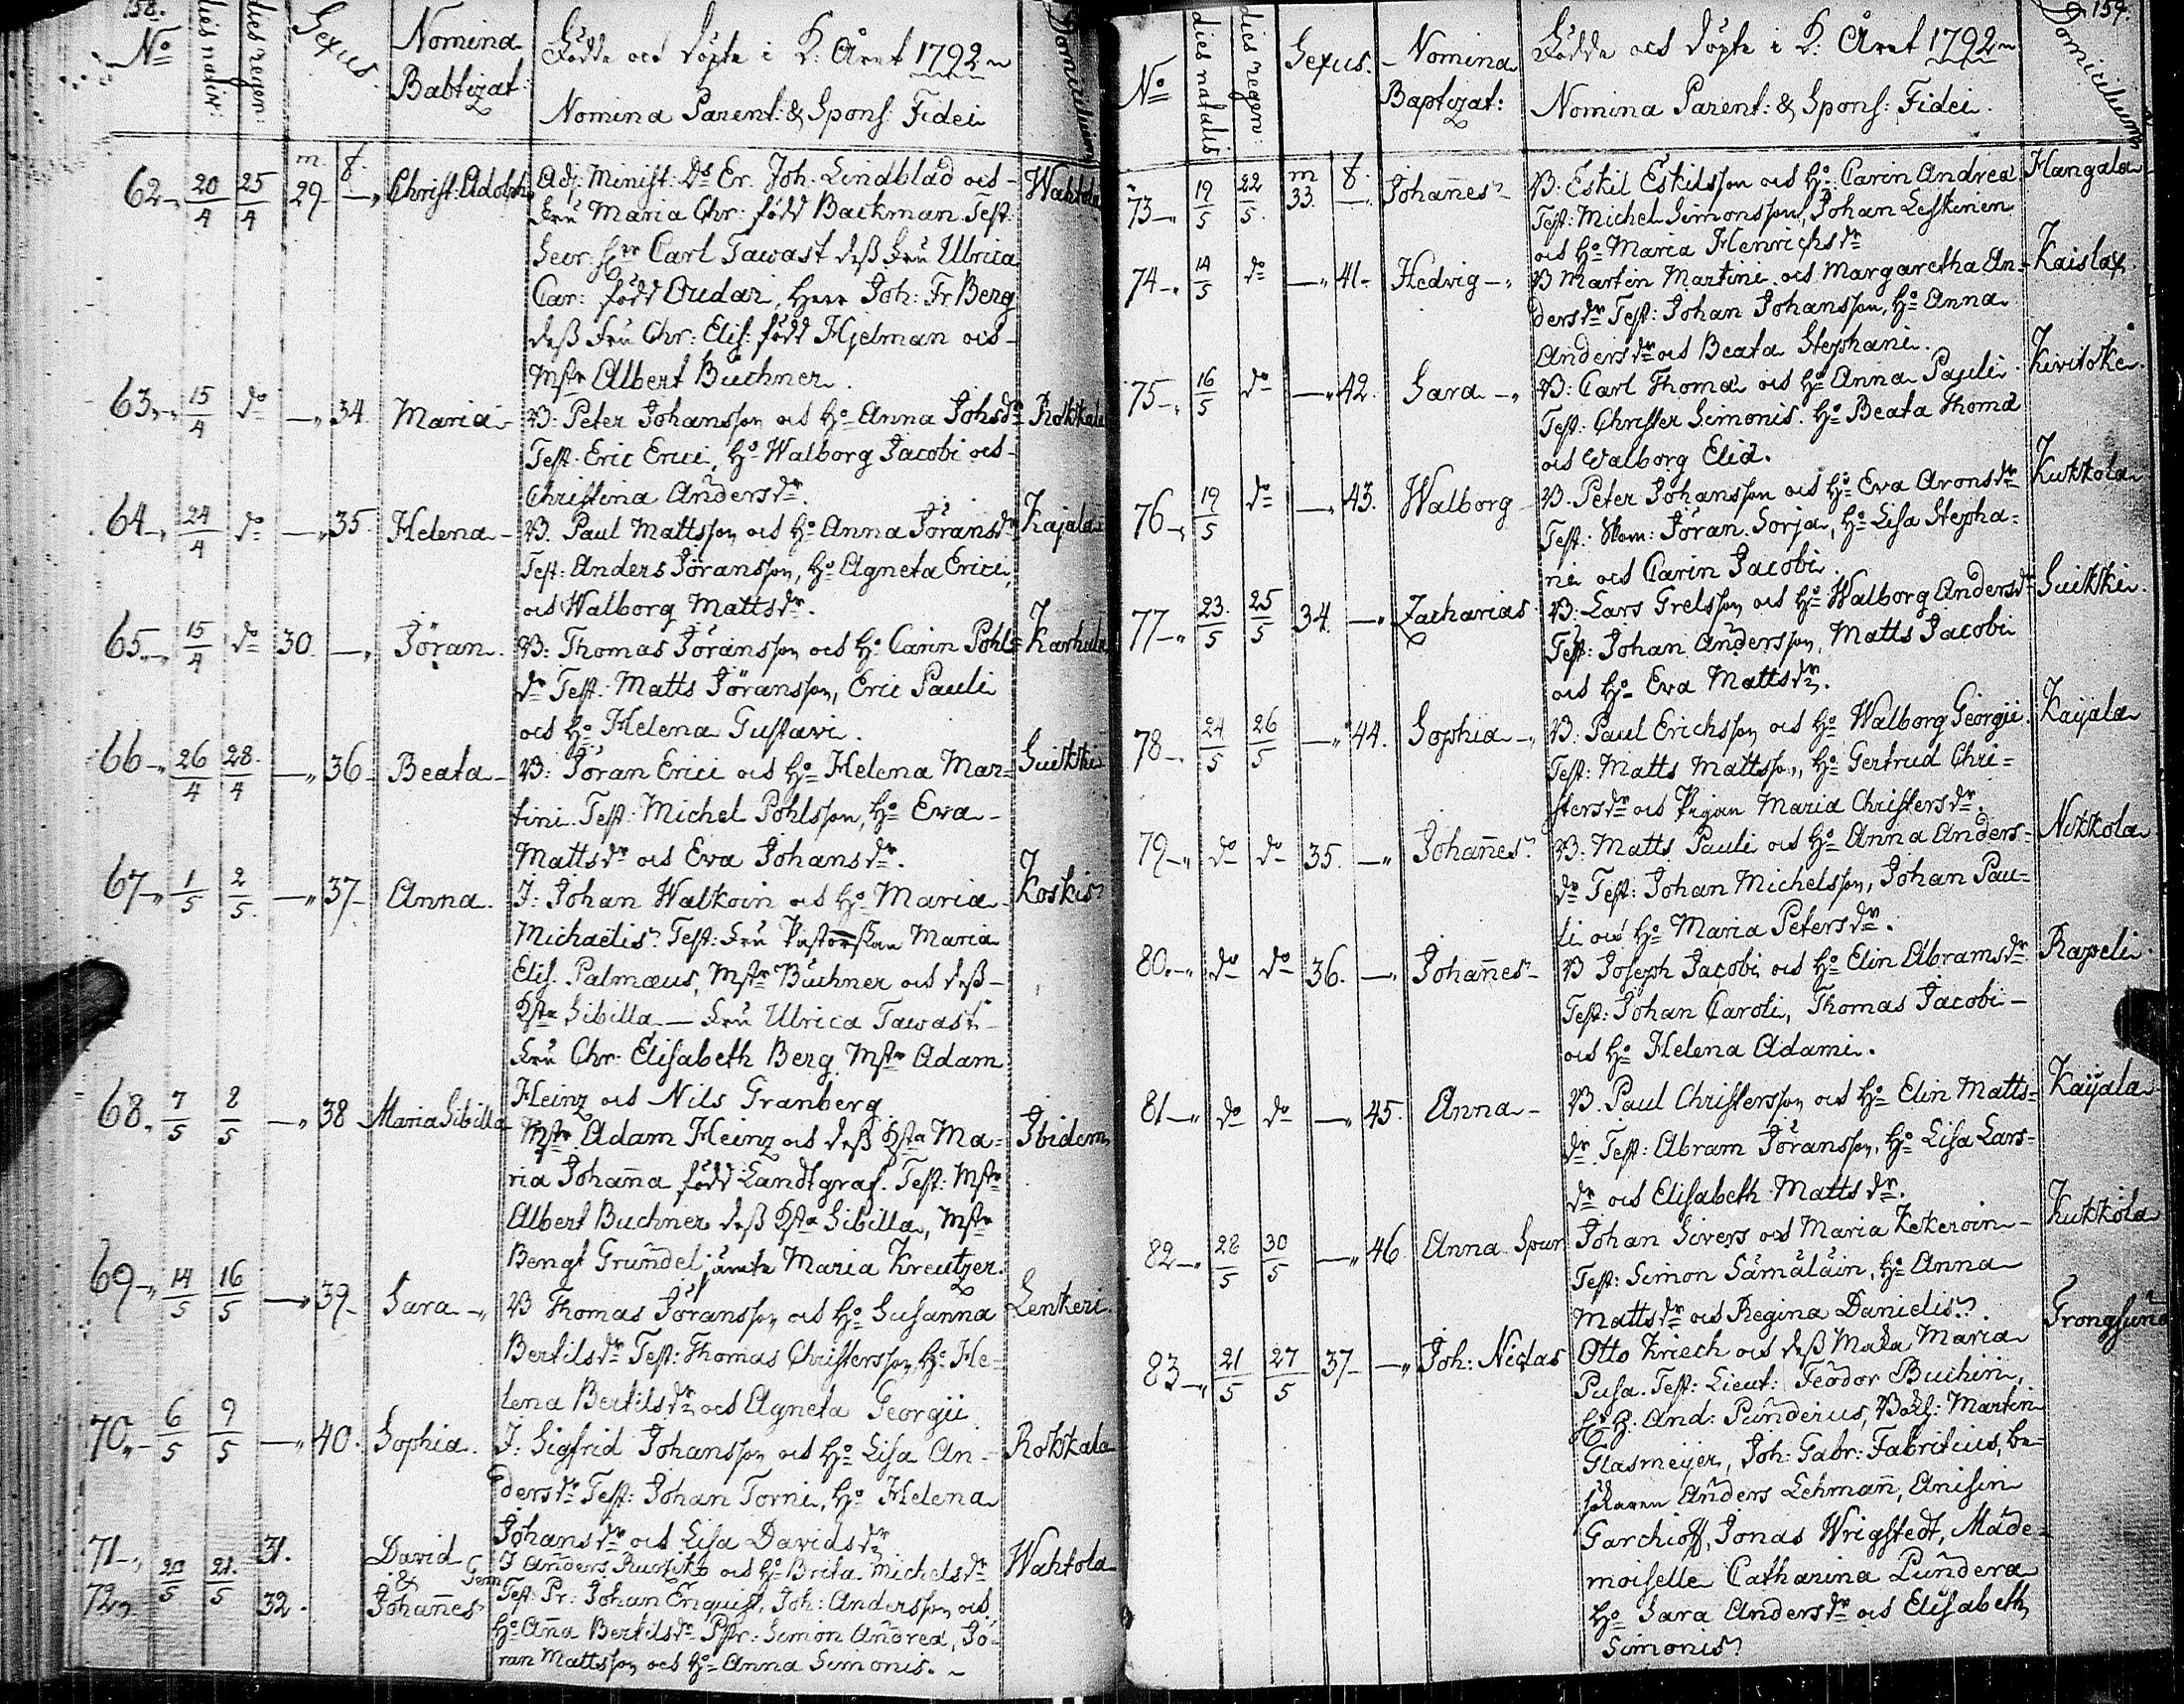 158.
No dies nativ: dies regen: Sexus. Nomina Babtizat: Födde och Döpte i K: Året 1792 Domicilium
Nomina Parent: & Spons: Fidei
m. f.
62 20/4 25/4 29 — Christ: Adolph Adj: Minist: Ds Er. Joh. Lindblad och Wahtola
Fru Maria Chr: född Backman Test:
Carl Tawast dess Fru Ulrica
Car: född Oudar, Herr Joh: Fr Berg
dess Fru Chr: Elis: född Hjelman och
Mstr Albert Buchner.
63 15/4 do — 34. Maria B: Peter Johansson och Ho Anna Johsdr Rokkala
Test: Eric Erici, Ho Walborg Jacobi och
Christina Andersdr.
64 24/4 do — 35. Helena B. Paul Mattsson och Ho Anna Jöransdr Kajala
Test: Anders Jöransson, Ho Agneta Erici,
och Walborg Mattsdr.
65 15/4 do 30. — Jöran. B: Thomas Jöransson och Ho Carin Pohls= Karhula
dr Test: Matts Jöransson, Eric Pauli
och Ho Helena Gustavi.
66 26/4 28/4 — 36 Beata B: Jöran Erici och Ho Helena Mar= Suikki
tini Test: Michel Pohlsson, Ho Eva
Mattsdr och Eva Johansdr.
67 1/5 2/5 — 37 Anna. I: Johan Walkoin och Ho Maria Koskis
Michaëlis. Test: Fru Pastorskan Maria
Elis. Palmæus, Mstr Buchner och dess
Ksta Sibilla — Fru Ulrica Tawast
Fru Chr: Elisabeth Berg, Mstr Adam
Heinz och Nils Granberg
68. 7/5 8/5 — 38 Maria Sibilla Mstr Adam Heinz och dess Ksta Ma= Ibidem
ria Johanna född Landtgraf. Test: Mstr
Albert Buchner dess Ksta Sibilla, Mstr
Bengt Grundel, Maria Kreutzer.
69 14/5 16/5 — 39 Sara B Thomas Jöransson och Ho Susanna Lenkeri.
Bertilsdr Test: Thomas Christersson, Ho He=
lena Bertilsdr och Agneta Georgii
70 6/5 9/5 — 40. Sophia. I: Sigfrid Johansson och Ho Lisa An= Rokkala
dersdr Test: Johan Torni, Ho Helena
Johansdr och Lisa Davidsdr
71 20/5 21/5 31. David I Anders och Ho Brita Michelsdr Wahtola
& Gem Test: Pr: Johan Enquist, Joh: Andersson och
72 32. Johannes Ho Anna Bertilsdr Simon Andreæ, Jö=
ran Mattsson och Ho Anna Simonis.
159.
No dies natalis dies regen: Sexus. Nomina Baptizat: Födde och Döpte i K: Året 1792 Domicilium
Nomina Parent: & Spons: Fidei.
m f.
73 19/5 22/5 33. — Johannes B: Eskil Eskilsson och Ho Carin Andreæ Hangala
Test: Michel Simonsson, Johan Leskinen
och Ho Maria Henrichsdr
74 14/5 do — 41 Hedvig B Martin Martini och Margaretha An= Kaislax
dersdr Test: Johan Johansson, Ho Anna
Andersdr och Beata Stephani.
75 16/5 do — 42. Sara B: Carl Thomæ och Ho Anna Pauli
Test: Christer Simonis. Ho Beata Thomæ
och Walborg Eliæ.
76 19/5 do — 43. Walborg B. Peter Johansson och Ho Eva Aronsdr Kukkola
Test: Jöran Sorja, Ho Lisa Stepha=
ni och Carin Jacobi.
77 23/5 25/5 34. — Zacharias B: Lars Grelsson och Ho Walborg Andersdr Suikki
Test: Johan Andersson, Matts Jacobi
och Ho Eva Mattsdr.
78 24/5 26/5 — 44. Sophia B: Paul Ericksson och Ho Walborg Georgii Kaijala
Test: Matts Mattsson, Ho Gertrud Chri=
stersdr och Pigan Maria Christersdr.
79 do do 35. — Johannes B: Matts Pauli och Ho Anna Anders= Nokkola
dr Test: Johan Michelsson, Johan Pau=
li och Ho Maria Petersdr.
80. do do 36. — Johannes B Joseph Jacobi och Ho Elin Abramsdr Rapeli
Test: Johan Caroli, Thomas Jacobi
och Ho Helena Adami.
81 do do — 45. Anna B. Paul Christersson och Ho Elin Matts= Kaijala
dr Test: Abram Jöransson, Ho Lisa Lars=
dr och Elisabeth Mattsdr.
82 28/5 30/5 — 46 Anna Spur Johan Sivers och Maria Kekeroin Kukkola
Test: Simon Sämäläin, Ho Anna
Mattsdr och Regina Danielis.
83 21/5 27/5 37 — Joh: Niclas Otto Kriech och dess Maka Maria Trongsund
Pusa. Test: Lieut: Feodor Buchin,
And: Punderus, Bokh: Martin
Glasmeijer, Joh: Gabr: Fabritius, be=
sökaren Anders Lehmann, Anisin
Garchioff, Jonas Wrigstedt, Made=
moiselle Catharina Pundera
Ho Sara Andersdr och Elisabeth
Simonis